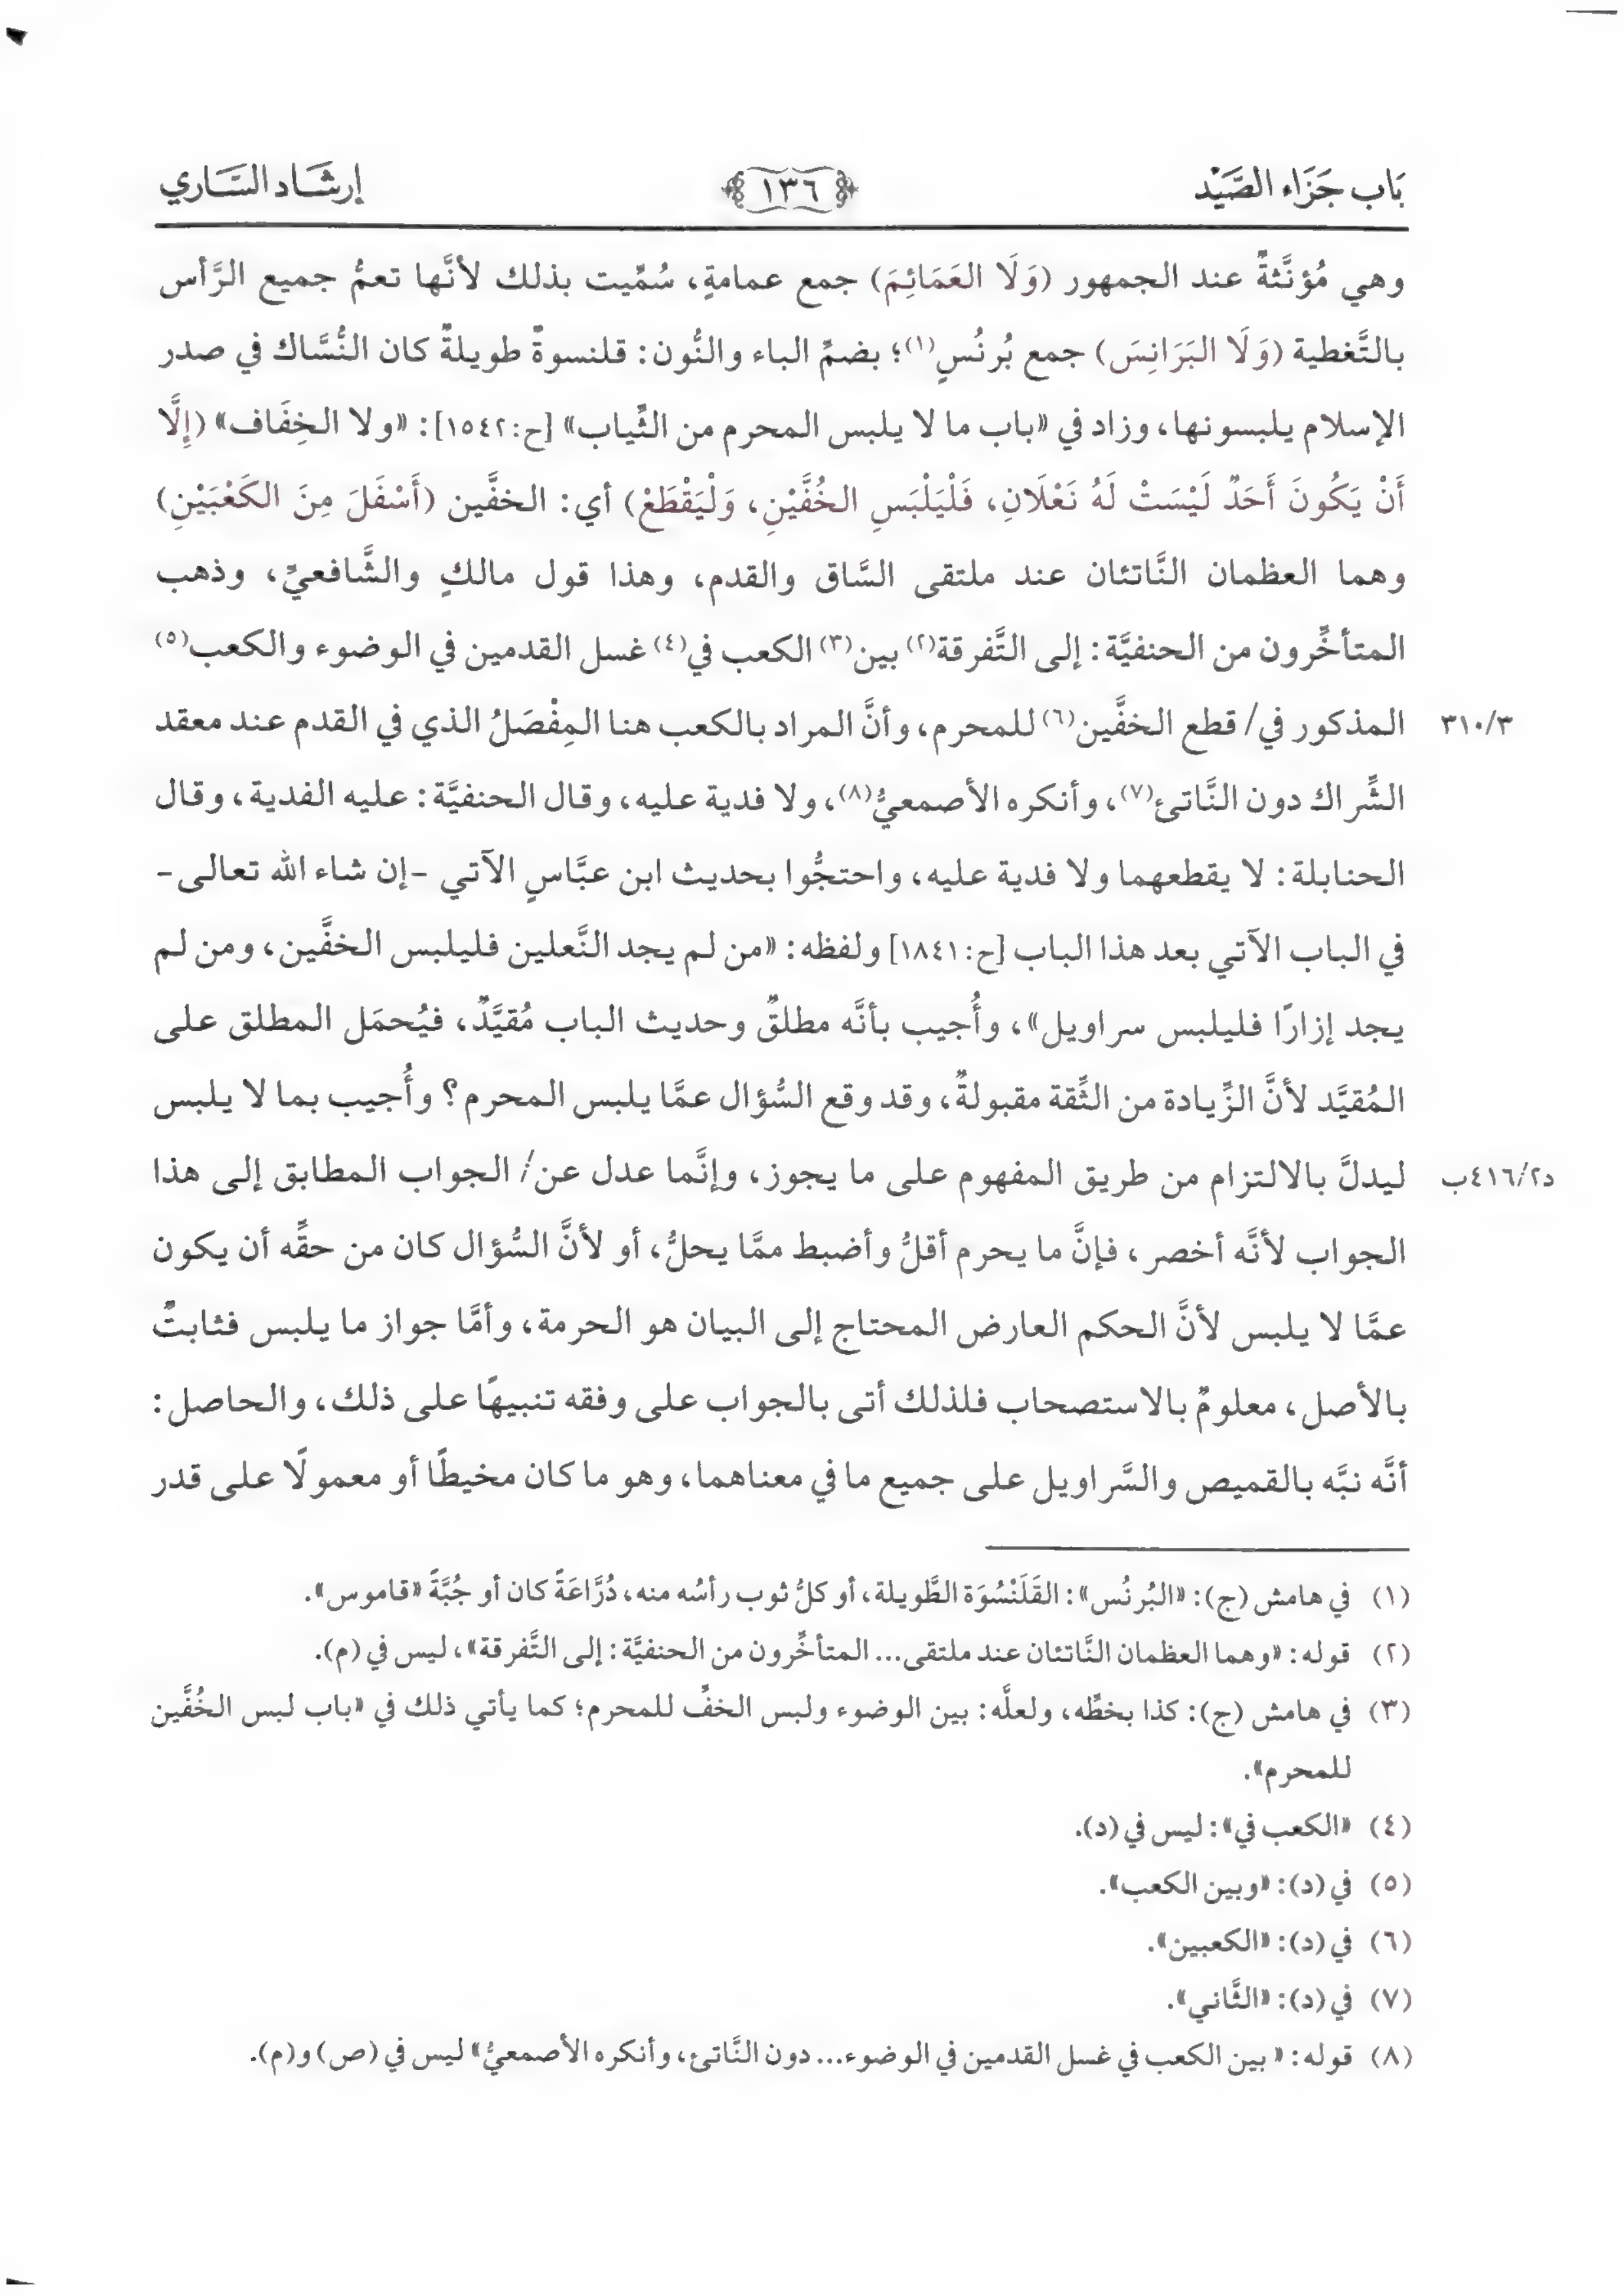 بَاب جَزَاء الصَّيْد
١٣٦
إرشَاد السَّاري
وهي مُؤنَّثةٌ عند الجمهور (وَلَا العَمَائِمَ) جمع عمامةٍ، سُمِّيت بذلك لأنَّها تعمُّ جميع الرَّأس
بالتَّغطية (وَلَا البَرَانِسَ) جمع بُرنُسٍ(١)؛ بضمِّ الباء والنُّون: قلنسوةٌ طويلةٌ كان النُّسَّاك في صدر
الإسلام يلبسونها، وزاد في «باب ما لا يلبس المحرم من الثِّياب» [ح:١٥٤٢]: «ولا الخِفَاف» (إِلَّا
أَنْ يَكُونَ أَحَدٌ لَيْسَتْ لَهُ نَعْلَانِ، فَلْيَلْبَسِ الخُفَّيْنِ، وَلْيَقْطَعْ) أي: الخفَّين (أَسْفَلَ مِنَ الكَعْبَيْنِ)
وهما العظمان النَّاتئان عند ملتقى السَّاق والقدم، وهذا قول مالكٍ والشَّافعيِّ، وذهب
المتأخِّرون من الحنفيَّة: إلى التَّفرقة(٢) بين(٣) الكعب في(٤) غسل القدمين في الوضوء والكعب(٥)
المذكور في/ قطع الخفَّين(٦) للمحرم، وأنَّ المراد بالكعب هنا المِفْصَلُ الذي في القدم عند معقد
٣١٠/٣
الشِّراك دون النَّاتئ(٧)، وأنكره الأصمعيُّ(٨)، ولا فدية عليه، وقال الحنفيَّة: عليه الفدية، وقال
الحنابلة: لا يقطعهما ولا فدية عليه، واحتجُّوا بحديث ابن عبَّاسٍ الآتي -إن شاء الله تعالى-
في الباب الآتي بعد هذا الباب [ح:١٨٤١] ولفظه: «من لم يجد النَّعلين فليلبس الخفَّين، ومن لم
يجد إزارًا فليلبس سراويل»، وأُجيب بأنَّه مطلقٌ وحديث الباب مُقيَّدٌ، فيُحمَل المطلق على
المُقيَّد لأنَّ الزِّيادة من الثِّقة مقبولةٌ، وقد وقع السُّؤال عمَّا يلبس المحرم؟ وأُجيب بما لا يلبس
ليدلَّ بالالتزام من طريق المفهوم على ما يجوز، وإنَّما عدل عن/ الجواب المطابق إلى هذا
د٤١٦/٢ب
الجواب لأنَّه أخصر، فإنَّ ما يحرم أقلُّ وأضبط ممَّا يحلُّ، أو لأنَّ السُّؤال كان من حقِّه أن يكون
عمَّا لا يلبس لأنَّ الحكم العارض المحتاج إلى البيان هو الحرمة، وأمَّا جواز ما يلبس فثابتٌ
بالأصل، معلومٌ بالاستصحاب فلذلك أتى بالجواب على وفقه تنبيهًا على ذلك، والحاصل:
أنَّه نبَّه بالقميص والسَّراويل على جميع ما في معناهما، وهو ما كان مخيطًا أو معمولًا على قدر
(١) في هامش (ج): «البُرنُس»: القَلَنْسُوَة الطَّويلة، أو كلُّ ثوب رأسُه منه، دُرَّاعَةً كان أو جُبَّةً «قاموس».
(٢) قوله: «وهما العظمان النَّاتئان عند ملتقى... المتأخِّرون من الحنفيَّة: إلى التَّفرقة»، ليس في (م).
(٣) في هامش (ج): كذا بخطِّه، ولعلَّه: بين الوضوء ولبس الخفِّ للمحرم؛ كما يأتي ذلك في «باب لبس الخُفَّين
للمحرم».
(٤) «الكعب في»: ليس في (د).
(٥) في (د): «وبين الكعب».
(٦) في (د): «الكعبين».
(٧) في (د): «الثَّاني».
(٨) قوله: « بين الكعب في غسل القدمين في الوضوء... دون النَّاتئ، وأنكره الأصمعيُّ» ليس في (ص) و(م).